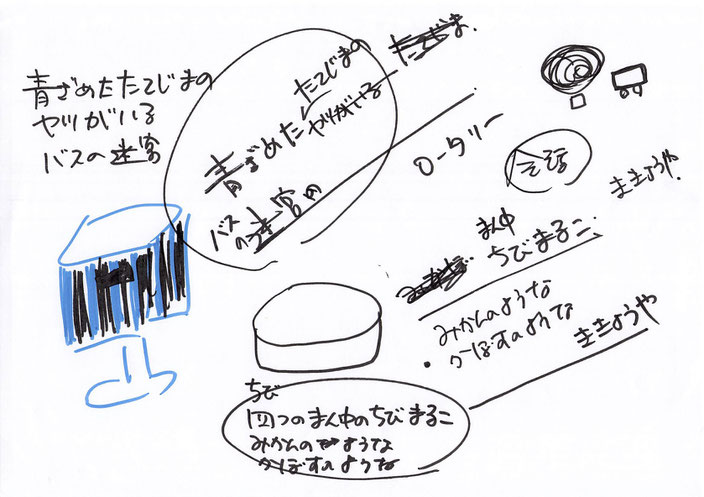 青ざめたたてじまの
ヤツがいる
バスの迷宮
たてじまの
たてじま
青ざめたヤツがいる
バス
の迷宮の
ロータリー
そば
ききょうや
まん中
ちびまるこ
みかんのような
・かぼすのような
ききょうや
ちび
四つのまん中のちびまるこ
みかんのような
かぼすのような